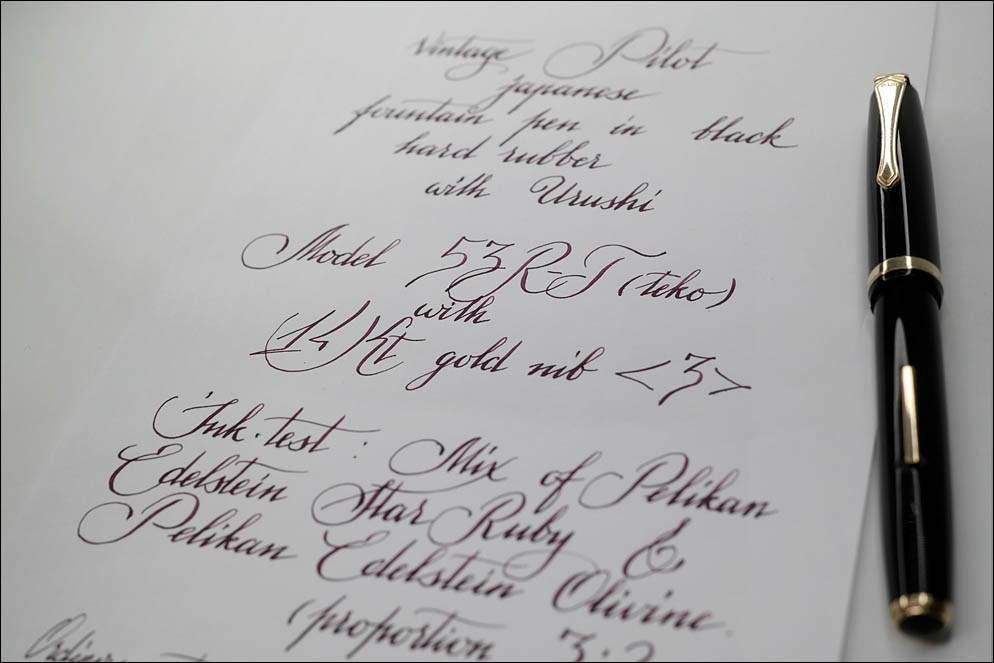 Vintage Pilot
japanese
fountain pen in black
hard rubber
with Urushi
Model 53R-T (teko)
with
14 Kt gold nib <3>
Ink-test: Mix of Pelikan
Edelstein Star Ruby &
Pelikan Edelstein Olivine.
(proportion 3:2